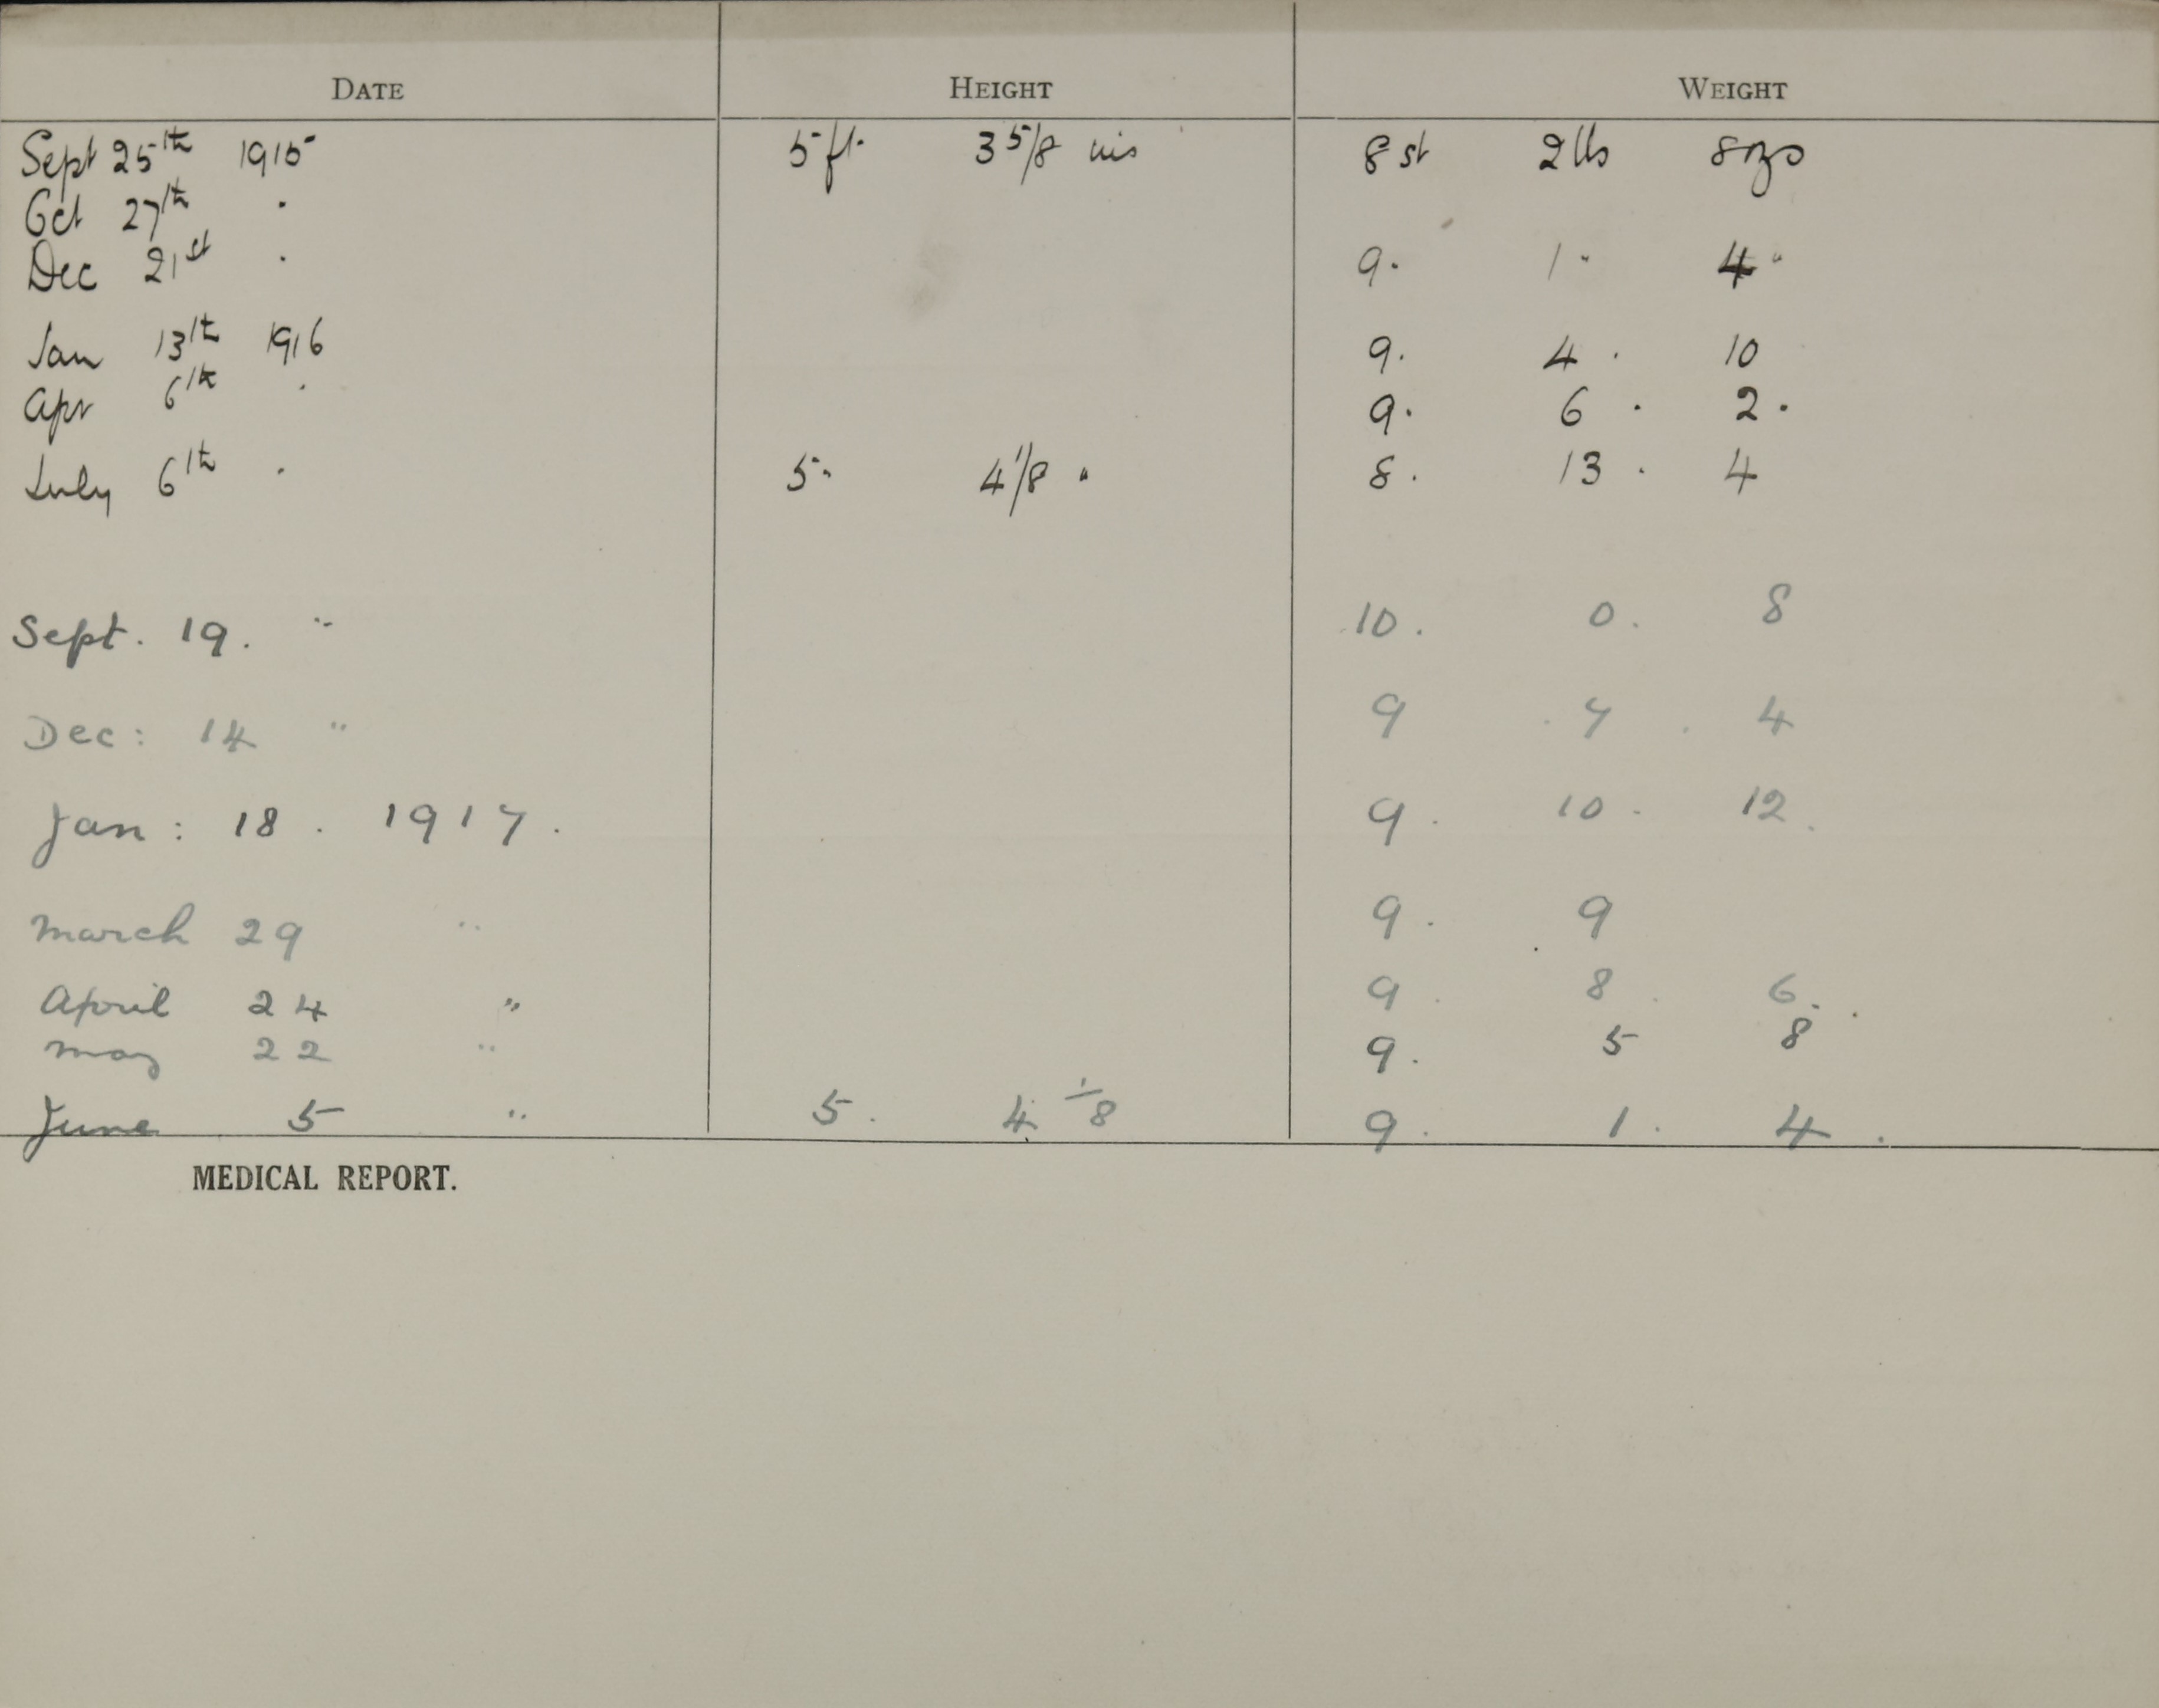 DATE HEIGHT WEIGHT
Sept 25th 1915 5 ft. 3 5/8 ins 8 st 2 lbs 8 ozs
Oct 27th "
Dec 21st " 9. 1 " 4 "
Jan 13th 1916 9. 4. 10
Apr 6th " 9. 6. 2.
July 6th " 5 " 4 1/8 " 8. 13. 4
Sept. 19. " 10. 0. 8
Dec: 14 " 9. 7. 4
Jan: 18. 1917. 9. 10. 12.
March 29 " 9. 9
April 24 " 9. 8. 6.
May 22 " 9. 5 8
June 5 " 5. 4 1/8 9. 1. 4.
MEDICAL REPORT.